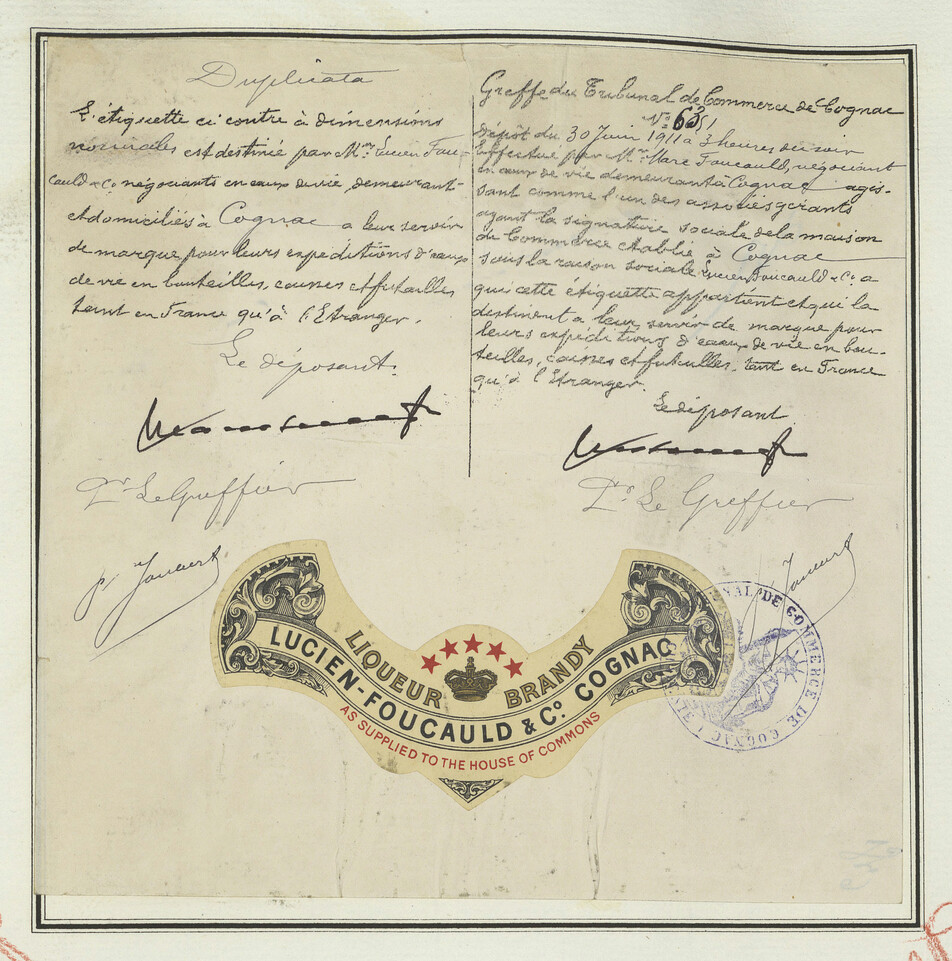 Duplicata
L'étiquette ci contre à dimensions
normales est destinée par Mrs Lucien Fou-
cauld & Co négociants en eaux de vie, demeurant
et domiciliés à Cognac a leur servir
de marque pour leurs expéditions d'eaux
de vie en bouteilles, caisses et futailles
tant en France qu'à l'Etranger.
Le déposant.
Pr Le Greffier
Greffe du Tribunal de Commerce de Cognac
No
Dépôt du 30 Juin 1911 à 3 heures du soir
Effectué par Mr Marc Foucauld, négociant
en eaux de vie demeurant à Cognac agis-
sant comme l'un des associés gérants
ayant la signature sociale de la maison
de Commerce établie à Cognac
sous la raison sociale Lucien Foucauld & Co a
qui cette étiquette appartient et qui la
destinent a leur servir de marque pour
leurs expéditions d'eaux de vie en bou-
teilles, caisses et futailles, tant en France
qu'à l'Etranger.
Le déposant
Pr Le Greffier
LIQUEUR BRANDY
LUCIEN-FOUCAULD & Co. COGNAC
AS SUPPLIED TO THE HOUSE OF COMMONS
NAL DE COMMERCE DE COGNAC